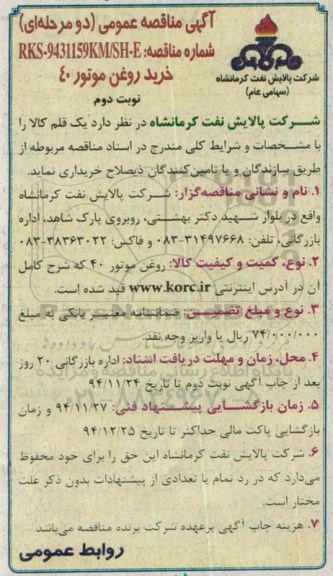 آگهی مناقصه عمومی (دو مرحله‌ای)
شماره مناقصه: RKS-9431159KM/SH-E
خرید روغن موتور ۴۰
شرکت پالایش نفت کرمانشاه
(سهامی عام)
نوبت دوم
شرکت پالایش نفت کرمانشاه در نظر دارد یک قلم کالا را
با مشخصات و شرایط کلی مندرج در اسناد مناقصه مربوطه از
طریق سازندگان و یا تامین‌کنندگان ذیصلاح خریداری نماید.
۱. نام و نشانی مناقصه‌گزار: شرکت پالایش نفت کرمانشاه
واقع در بلوار شهید دکتر بهشتی، روبروی پارک شاهد، اداره
بازرگانی، تلفن: ۳۱۴۹۷۶۶۸-۰۸۳ و فاکس: ۳۸۳۶۳۰۲۲-۰۸۳
۲. نوع، کمیت و کیفیت کالا: روغن موتور ۴۰ که شرح کامل
آن در آدرس اینترنتی www.korc.ir قید شده است.
۳. نوع و مبلغ تضمین: ضمانتنامه معتبر بانکی به مبلغ
۷۴/۰۰۰/۰۰۰ ریال یا واریز وجه نقد.
۴. محل، زمان و مهلت دریافت اسناد: اداره بازرگانی ۲۰ روز
بعد از چاپ آگهی نوبت دوم تا تاریخ ۹۴/۱۱/۲۴
۵. زمان بازگشایی پیشنهاد فنی: ۹۴/۱۱/۲۷ و زمان
بازگشایی پاکت مالی حداکثر تا تاریخ ۹۴/۱۲/۲۵
۶. شرکت پالایش نفت کرمانشاه این حق را برای خود محفوظ
می‌دارد که در رد تمام یا تعدادی از پیشنهادات بدون ذکر علت
مختار است.
۷. هزینه چاپ آگهی برعهده شرکت برنده مناقصه می‌باشد.
روابط عمومی